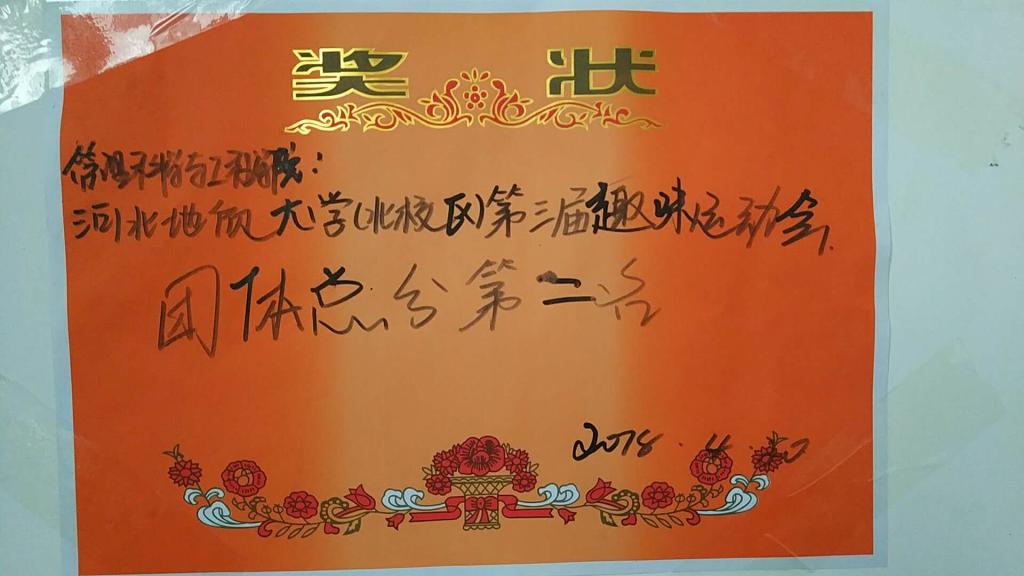 奖状
管理科学与工程学院：
河北地质大学(北校区)第三届趣味运动会
团体总分第二名
2018.4.20